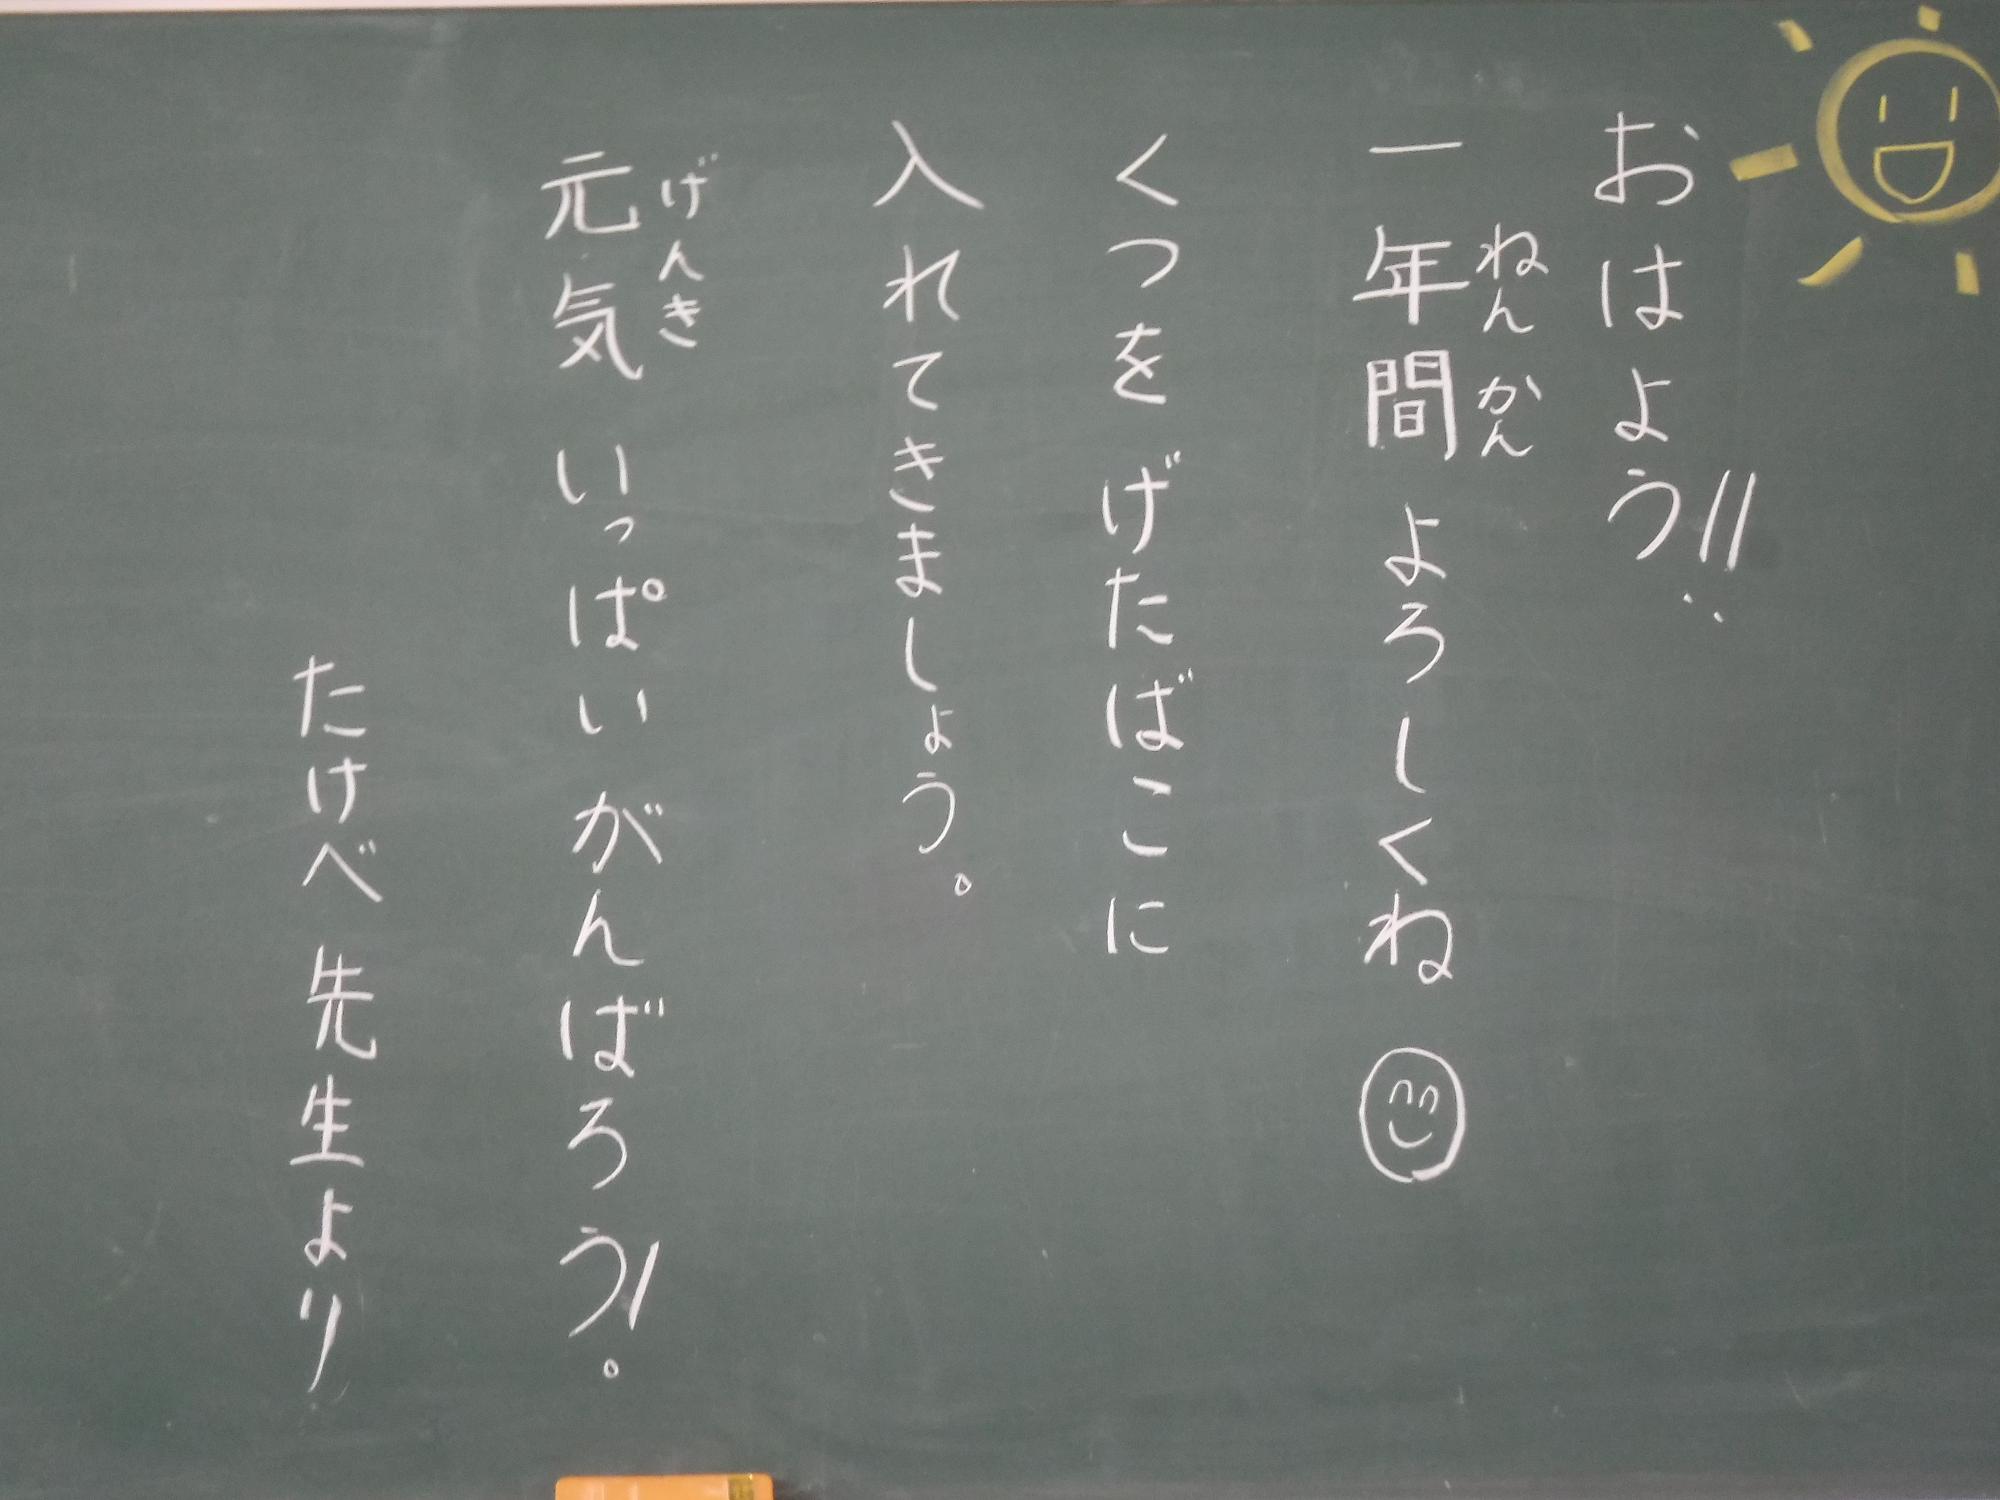 おはよう!!
一年間よろしくね
ねんかん
くつをげたばこに
入れてきましょう。
げんき
元気いっぱいがんばろう!。
たけべ先生より